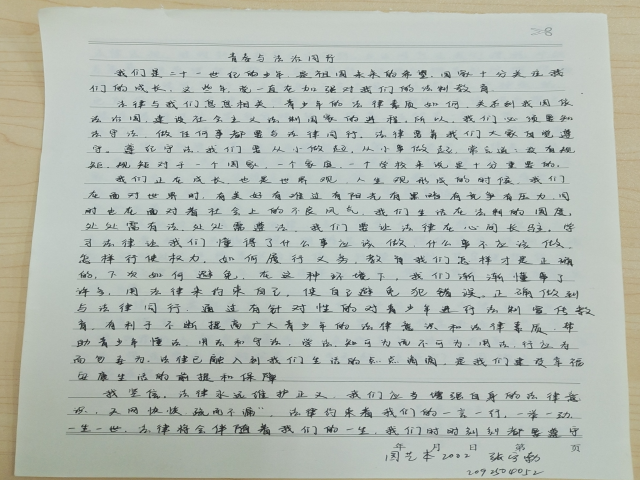 青春与法治同行
我们是二十一世纪的少年，是祖国未来的希望，国家十分关注我
们的成长，这些年也一直在加强对我们的法制教育。
法律与我们息息相关，青少年的法律素质如何，关系到我国依
法治国，建设社会主义法制国家的进程，所以，我们必须要知
法守法，做任何事都要与法律同行，法律需我们大家自觉遵
守。遵纪守法，我们要从小做起，从小事做起，常言道：没有规
矩，规矩对于一个国家，一个家庭，一个学校来说是十分重要的，
我们正在成长，也是世界观，人生观形成的时候，我们
在面对世界时，有美好有难过有阳光有黑暗有竞争有压力，同
时也在面对着社会上的不良风气，我们生活在法制的国度，
处处需有法，处处需遵法，我们要让法律在心间长驻，学
习法律让我们懂得了什么事应该做，什么事不应该做，
怎样行使权力，如何履行义务，教育我们怎样才是正确
的，下次如何避免，在这种环境下，我们渐渐懂事了
许多，用法律来约束自己，使自己避免犯错误，正确做到
与法律同行，通过有针对性的对青少年进行法制宣传教
育，有利于不断提高广大青少年的法律意识和法律素质，帮
助青少年懂法，用法和守法，学法，知可为而不可为，用法，行应为
而必为，法律已融入到我们生活的点点滴滴，是我们建设幸福
安康生活的前提和保障
我坚信，法律永远维护正义，我们应当增强自身的法律意
识，天网恢恢，疏而不漏"，法律约束着我们的一言一行，一举一动
一生一世，法律将会伴随着我们的一生，我们时时刻刻都要遵守
年 月 日 第 页
园艺本2002 张
2092504052